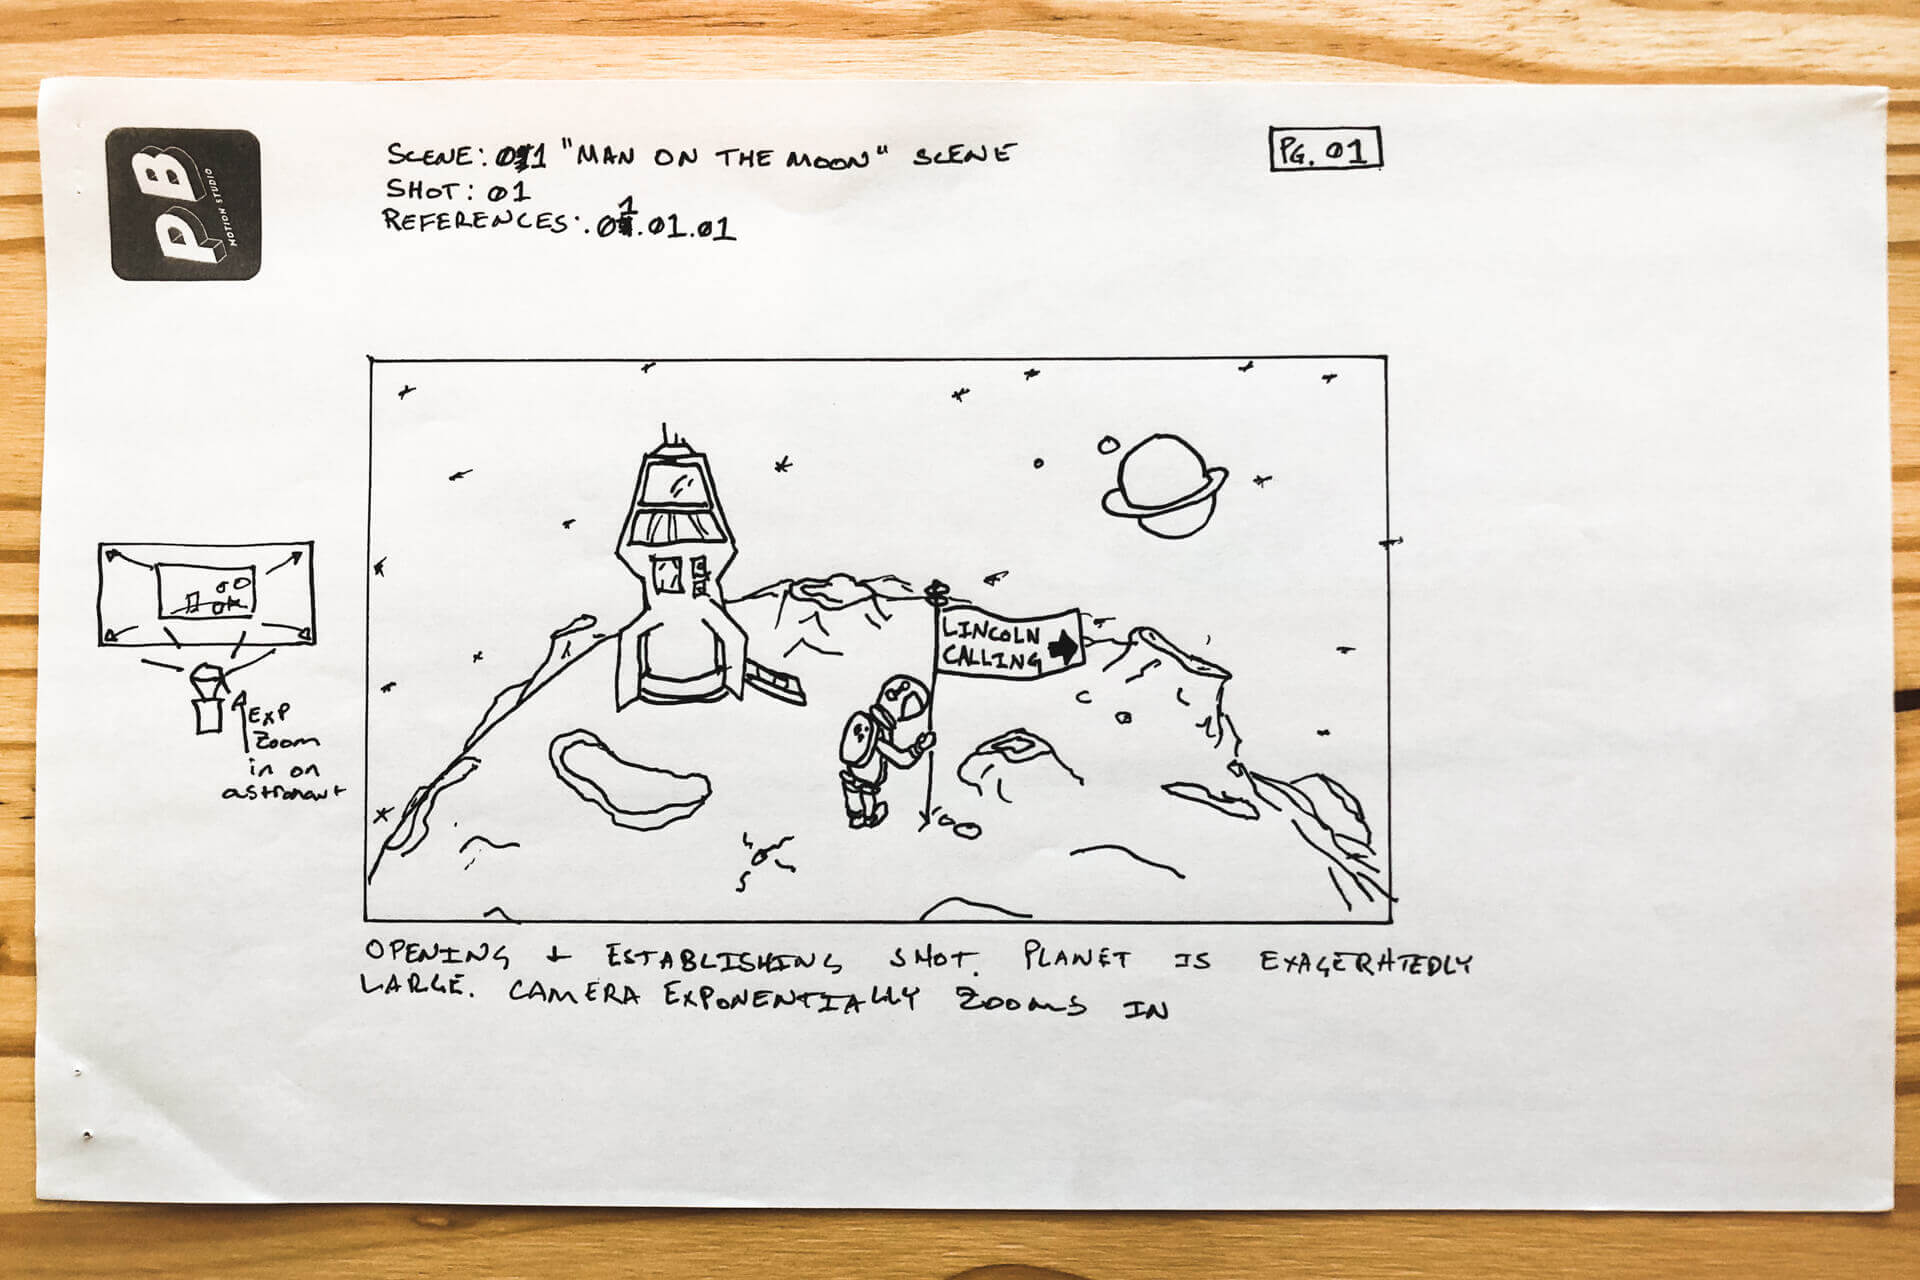 PB
MOTION STUDIO
SCENE: 01 "MAN ON THE MOON" SCENE
SHOT: 01
REFERENCES: 01.01.01
PG. 01
LINCOLN
CALLING
EXP
Zoom
in on
astronaut
OPENING + ESTABLISHING SHOT. PLANET IS EXAGERATEDLY
LARGE. CAMERA EXPONENTIALLY ZOOMS IN